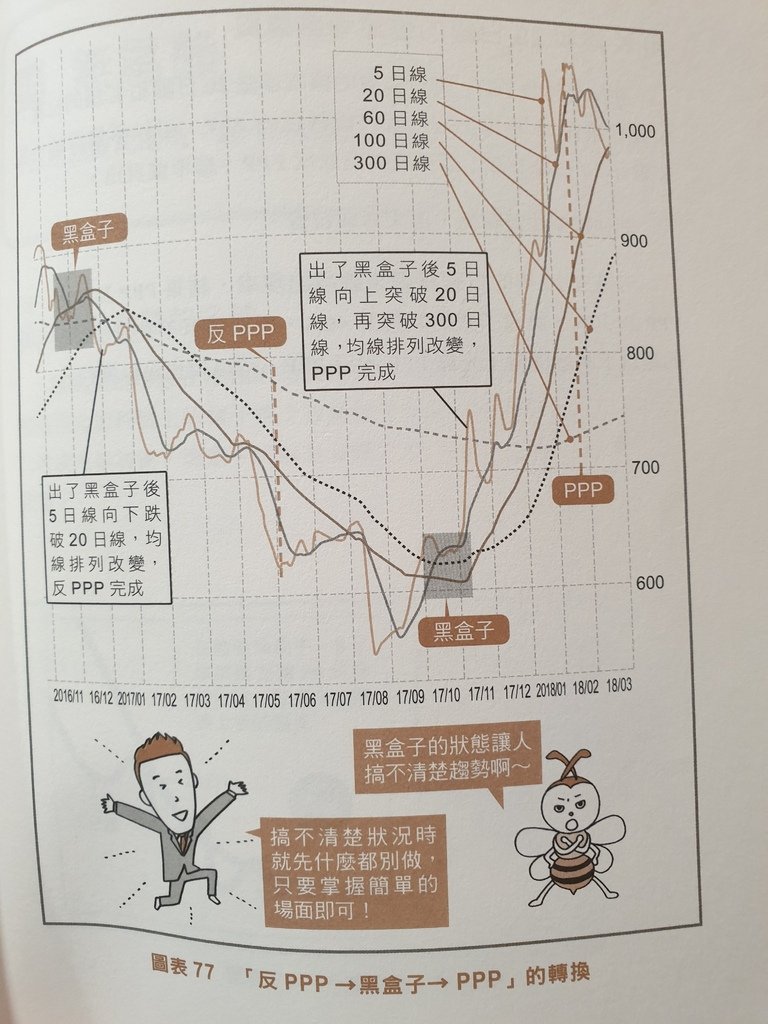 5日線
20日線
60日線
100日線
300日線
1,000
900
800
700
600
黑盒子
反PPP
出了黑盒子後5日
線向上突破20日
線，再突破300日
線，均線排列改變，
PPP完成
出了黑盒子後
5日線向下跌
破20日線，均
線排列改變，
反PPP完成
PPP
黑盒子
2016/11 16/12 2017/01 17/02 17/03 17/04 17/05 17/06 17/07 17/08 17/09 17/10 17/11 17/12 2018/01 18/02 18/03
黑盒子的狀態讓人
搞不清楚趨勢啊～
搞不清楚狀況時
就先什麼都別做，
只要掌握簡單的
場面即可！
圖表77 「反PPP→黑盒子→PPP」的轉換